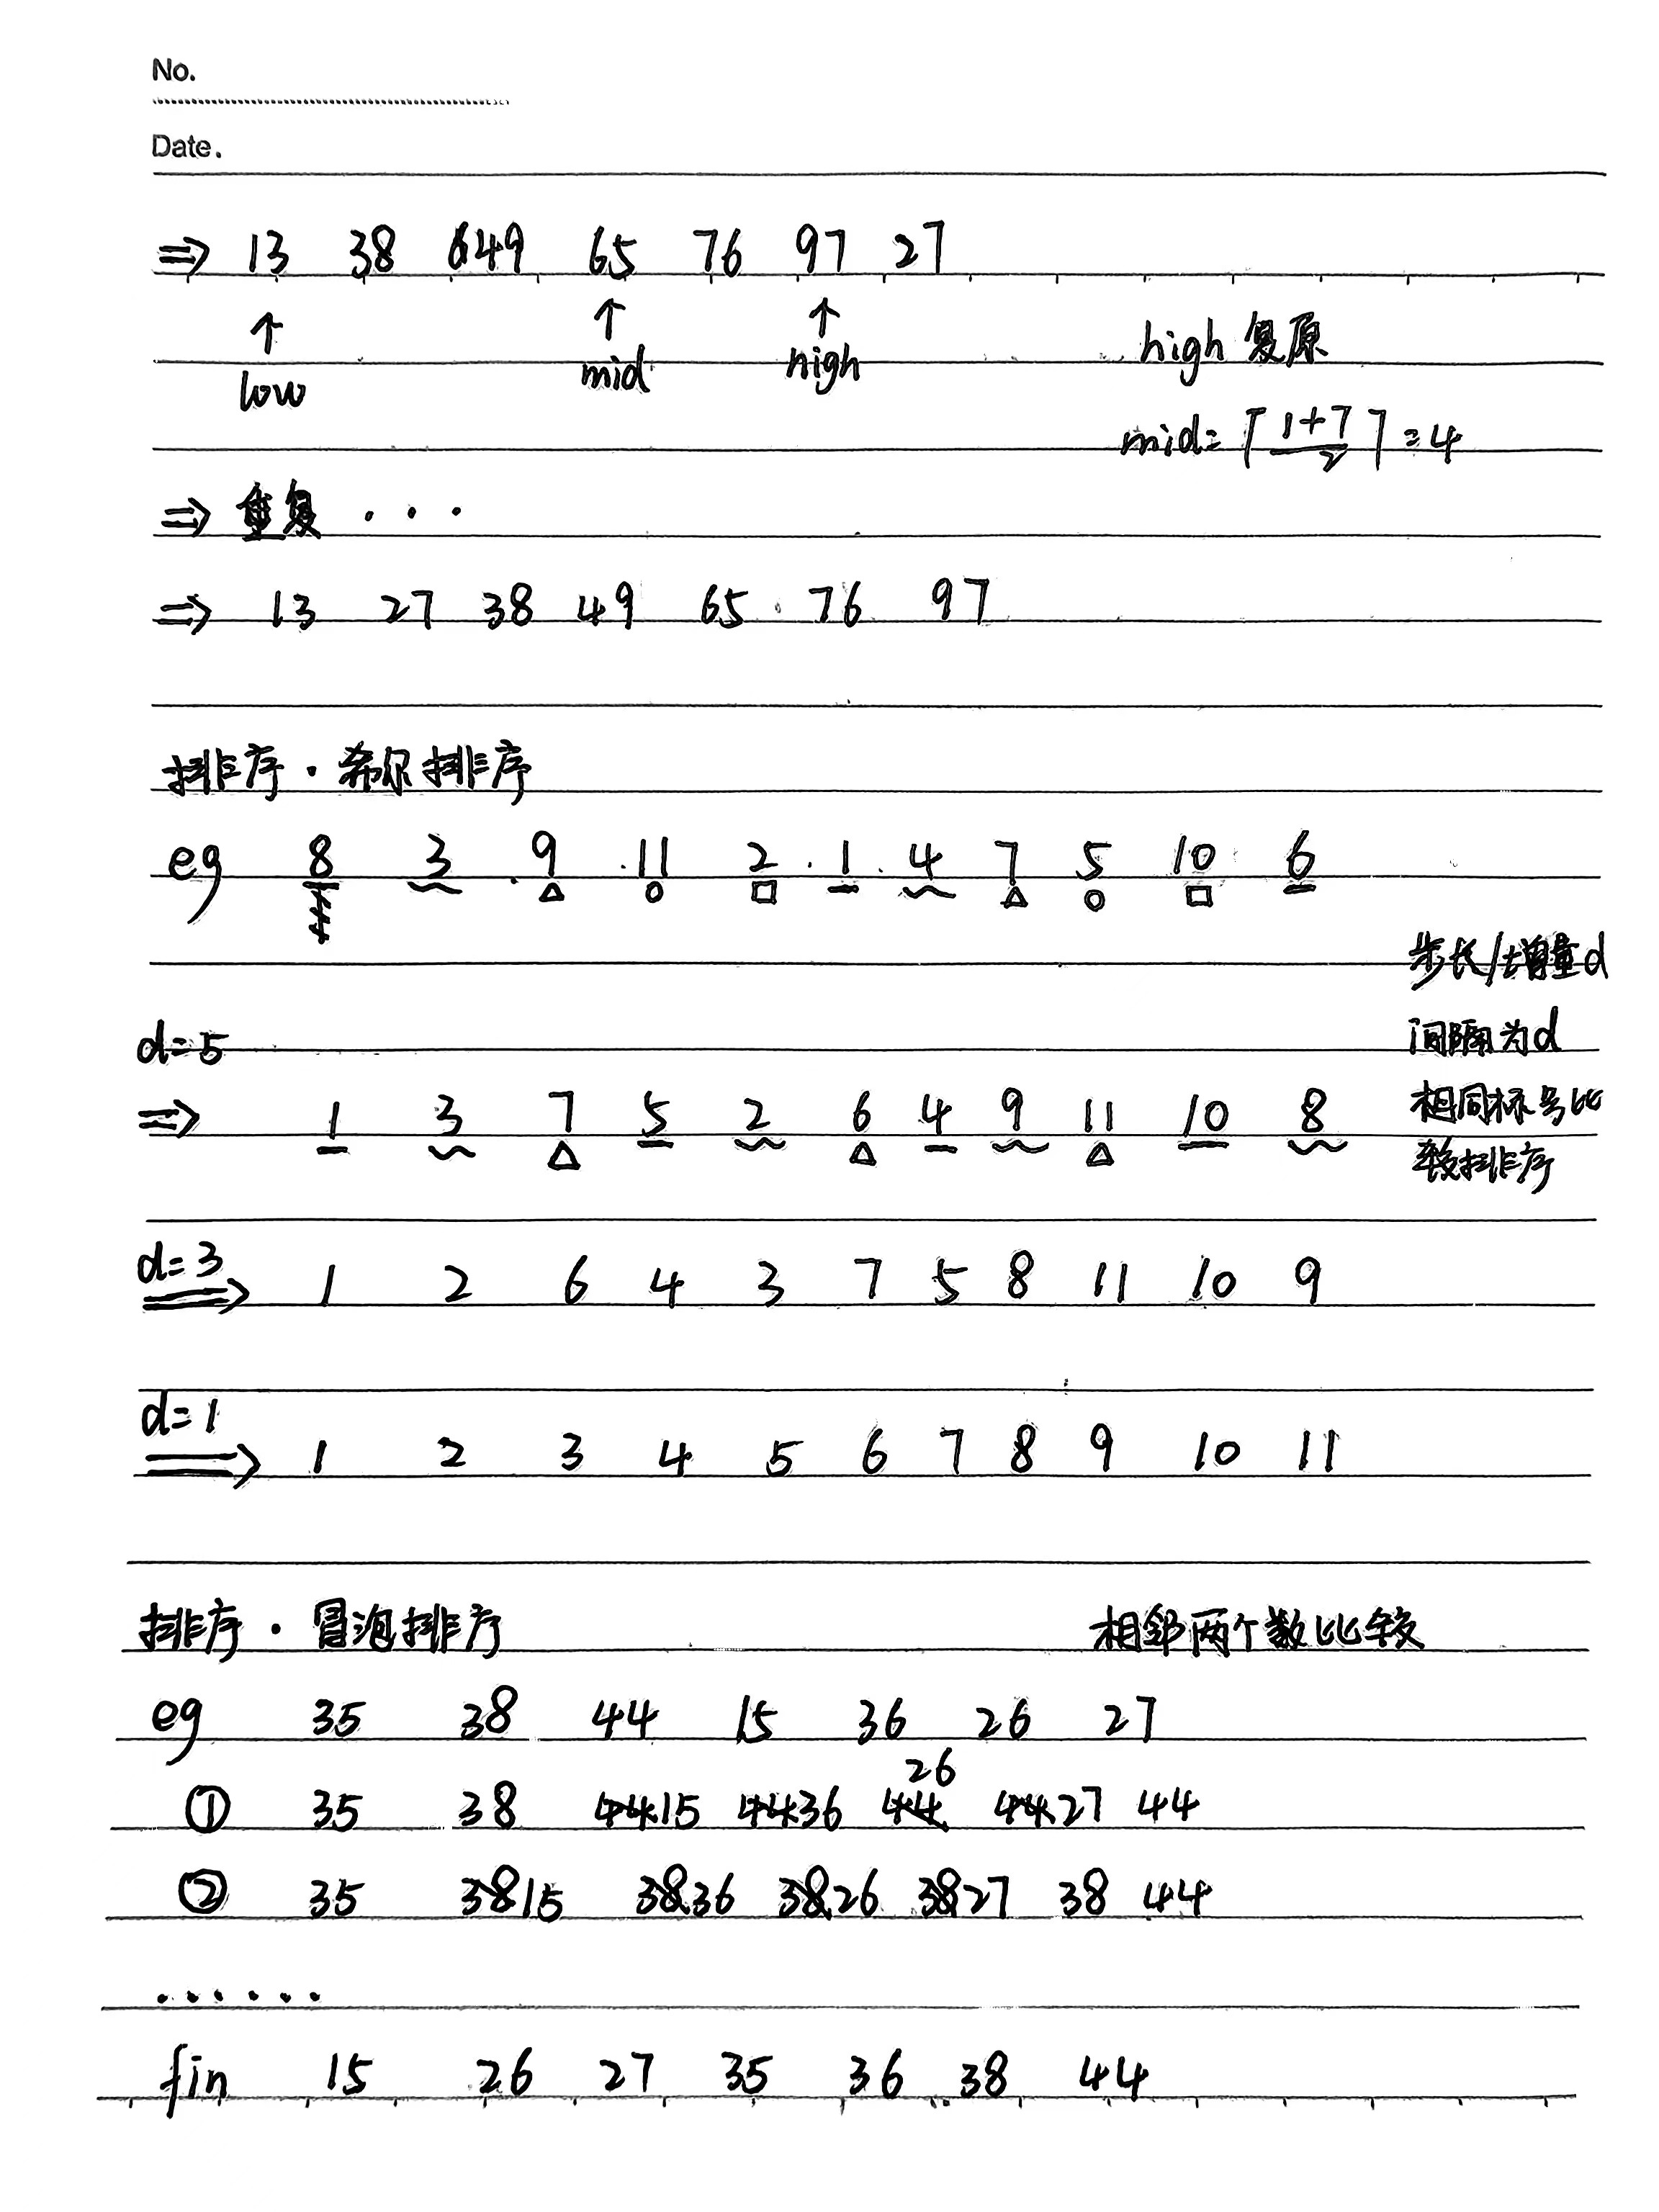 No.
Date.
⇒ 13 38 649 65 76 97 27
↑ ↑ ↑
low mid high high 复原
mid=⌈(1+7)/2⌉=4
⇒ 重复 · · ·
⇒ 13 27 38 49 65 76 97
排序·希尔排序
eg 8 3 9 11 2 1 4 7 5 10 6
步长/增量d
d=5 间隔为d
⇒ 1 3 7 5 2 6 4 9 11 10 8 相同标号比
较排序
d=3 ⇒ 1 2 6 4 3 7 5 8 11 10 9
d=1 ⇒ 1 2 3 4 5 6 7 8 9 10 11
排序·冒泡排序 相邻两个数比较
eg 35 38 44 15 36 26 27
26
① 35 38 44 15 44 36 44 44 27 44
② 35 38 15 38 36 38 26 38 27 38 44
······
fin 15 26 27 35 36 38 44